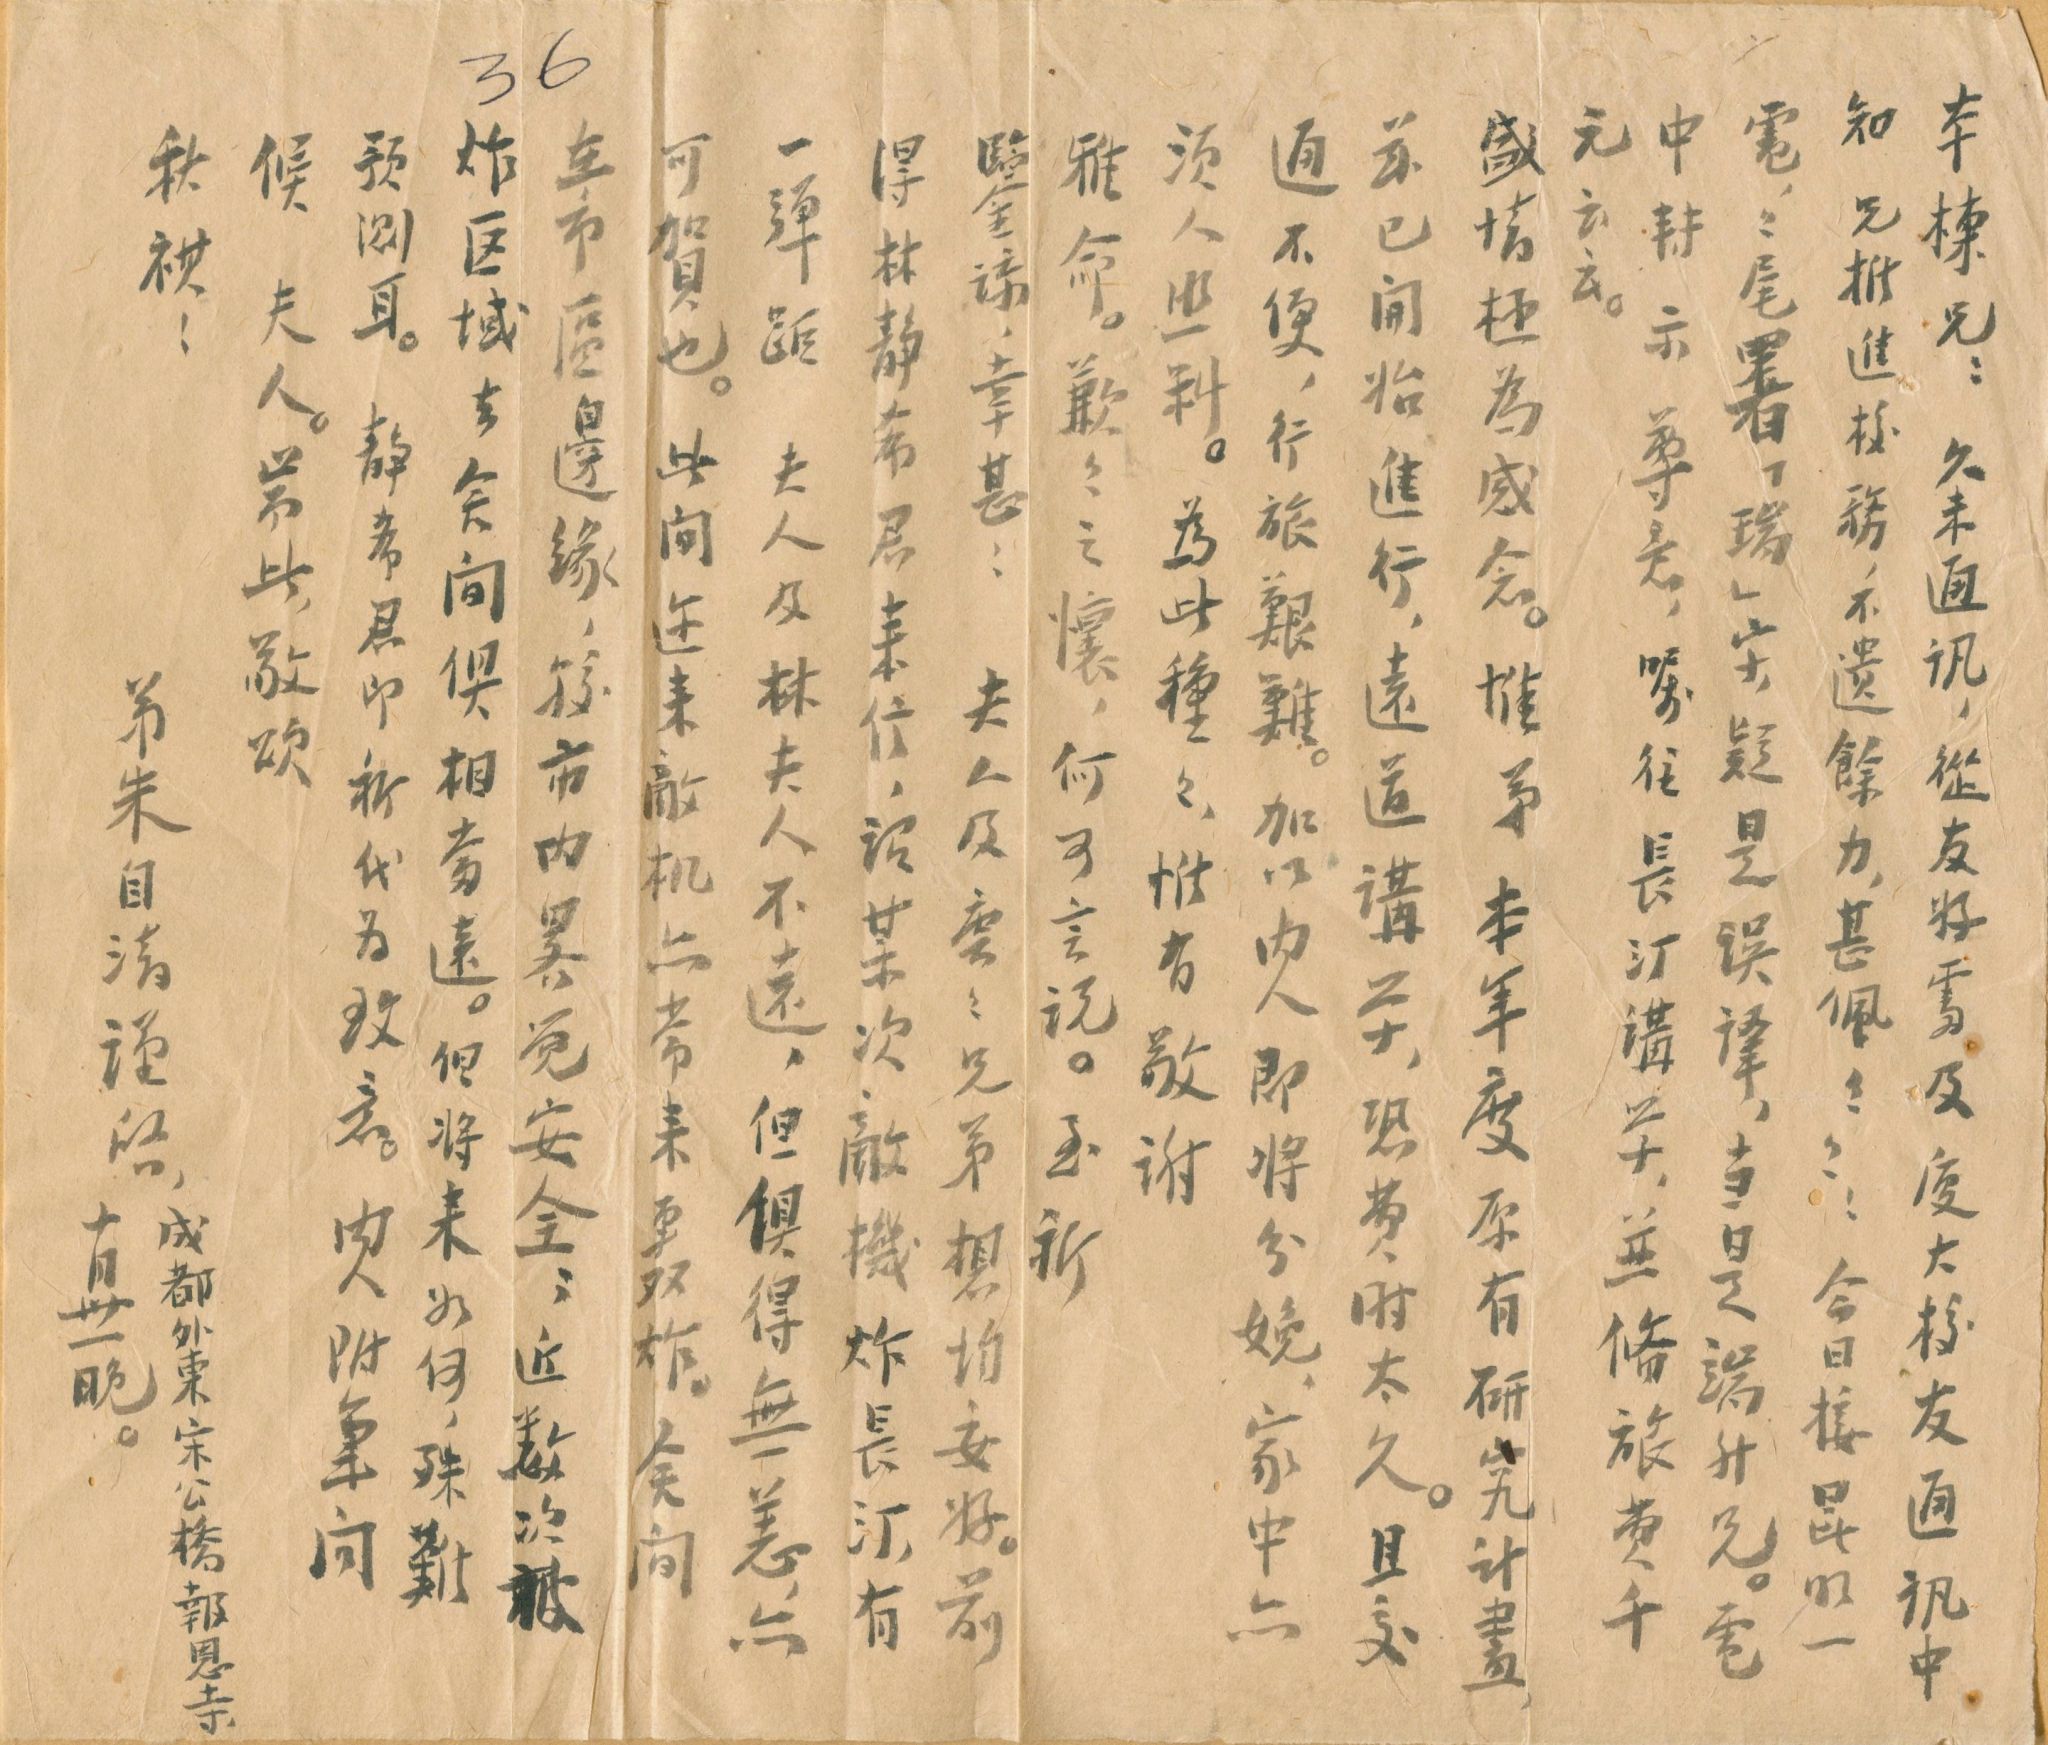 36
本棟兄：久未通訊，從友好處及廈大校友通訊中
知 兄推進校務，不遺餘力，甚佩〻〻：今日接昆明一
電，〻尾署「瑞」字，疑是誤譯，當是端升兄。電
中轉示 尊意，囑往長汀講學，並備旅費千
元云云。
盛情極為感念。惟弟本年度原有研究計畫，
茲已開始進行，遠道講學，恐費時太久。且交
通不便，行旅艱難。加以內人即將分娩，家中亦
須人照料。為此種〻，惟有敬謝
雅命。歉〻之懷，何可言說。至祈
鑒諒，幸甚： 夫人及 〻兄弟想均安好。前
得林靜希君來信，謂某次敵機炸長汀，有
一彈距 夫人及林夫人不遠，但俱得無恙，亦
可賀也。此間近來敵机亦常來轟炸。舍間
在市區邊緣，較市內畧覺安全；近數次被
炸区域去舍間俱相當遠。但將來如何，殊難
預測耳。 靜希君即祈代为致意。內人附筆问
候 夫人。耑此，敬頌
秋祺！
弟朱自清謹啓，成都外東宋公橋報恩寺
十月卅一晚。